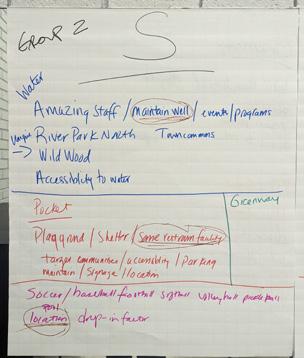 GROUP 2
S
Water
Amazing Staff / maintain well / events / programs
River Park North Towncommons
Wild Wood
Accessibility to water
Pocket
Greenway
Playground / Shelter / Some restroom facility
target communities / accessibility / Parking
maintain / Signage / location
Soccer / baseball football softball volleyball
location drop-in factor